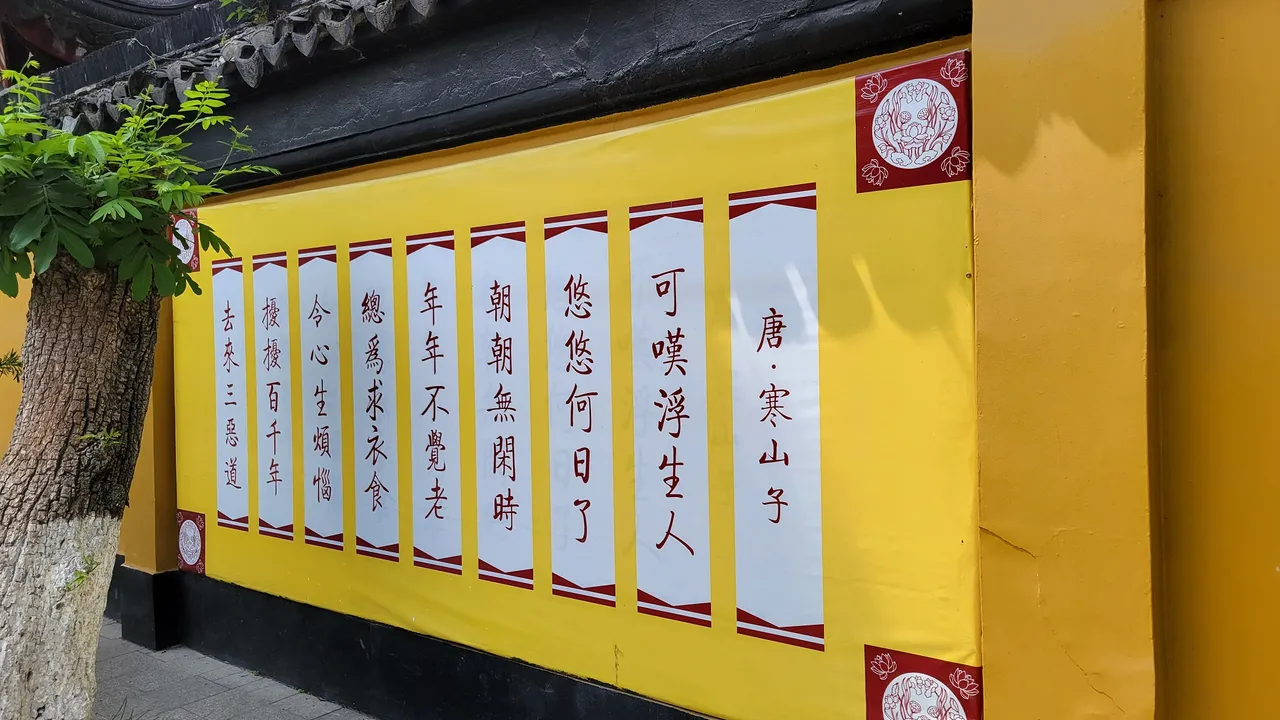 唐·寒山子
可嘆浮生人
悠悠何日了
朝朝無閑時
年年不覺老
總爲求衣食
令心生煩惱
擾擾百千年
去來三惡道